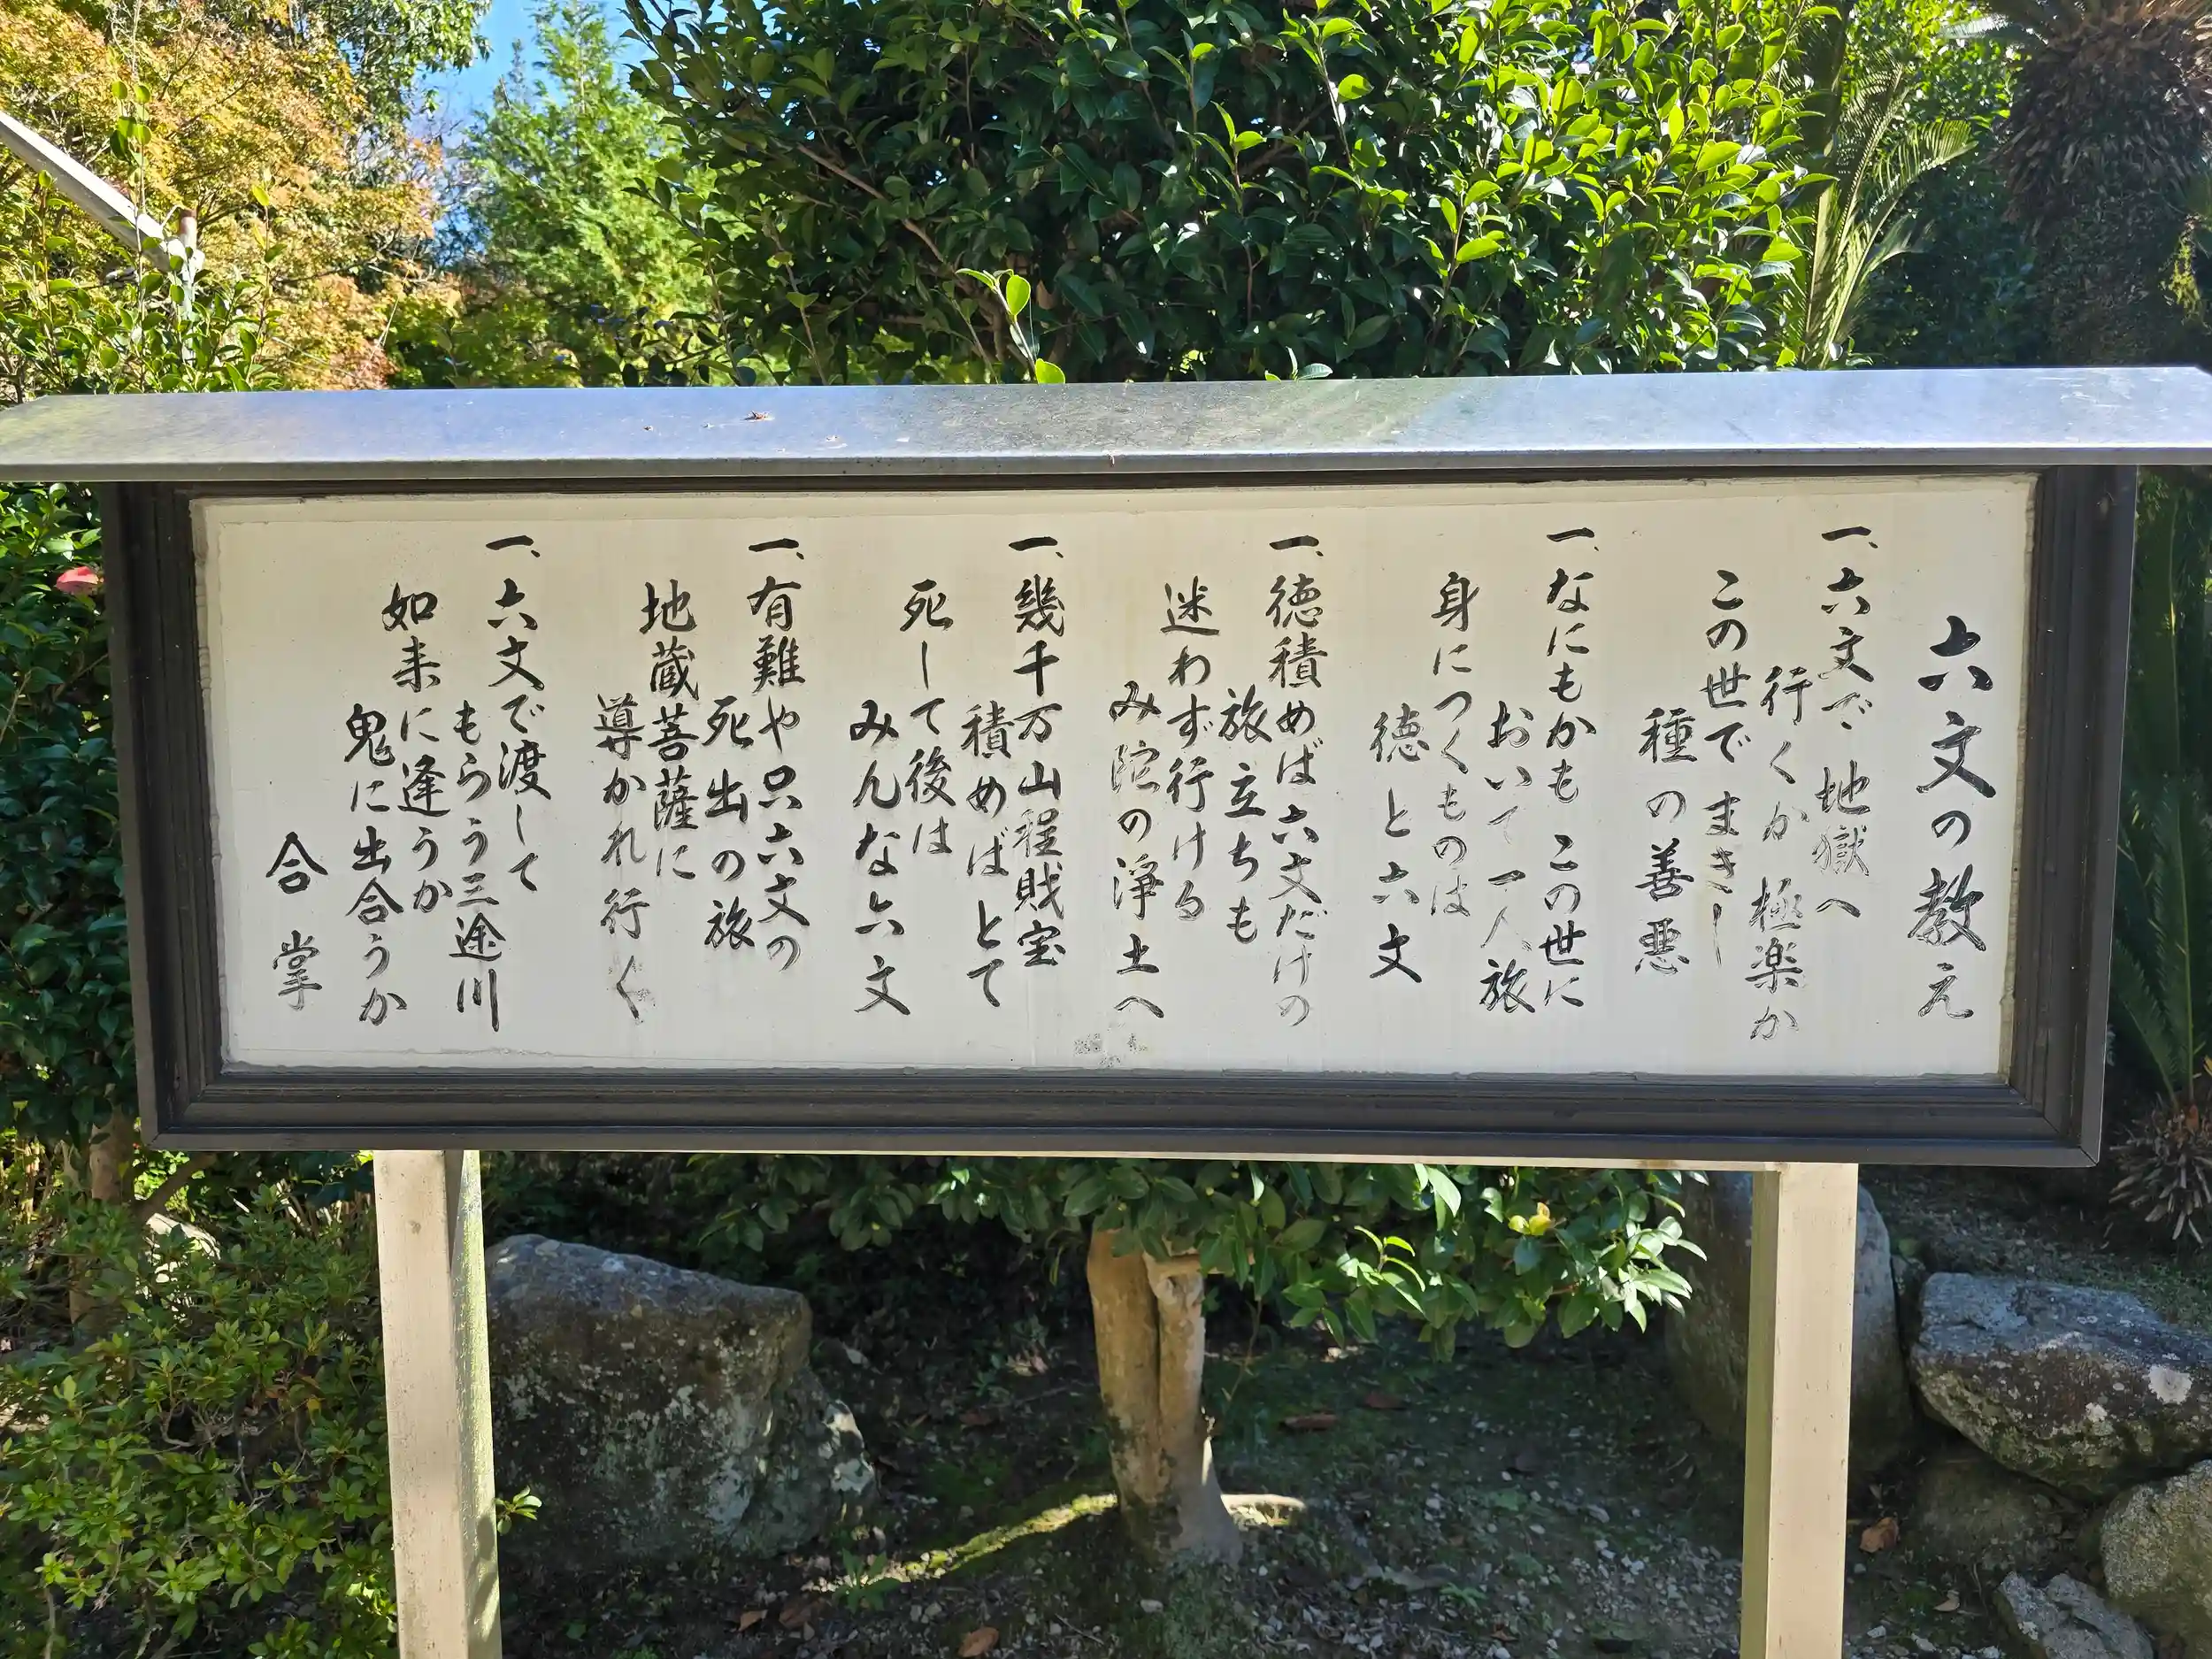 六文の教え
一、六文で地獄へ
行くか極楽か
この世でまきし
種の善悪
一、なにもかもこの世に
おいて一人旅
身につくものは
徳と六文
一、徳積めば六文だけの
旅立ちも
迷わず行ける
み陀の浄土へ
一、幾千万山程財宝
積めばとて
死して後は
みんな六文
一、有難や只六文の
死出の旅
地蔵菩薩に
導かれ行く
一、六文で渡して
もらう三途川
如来に逢うか
鬼に出合うか
合掌